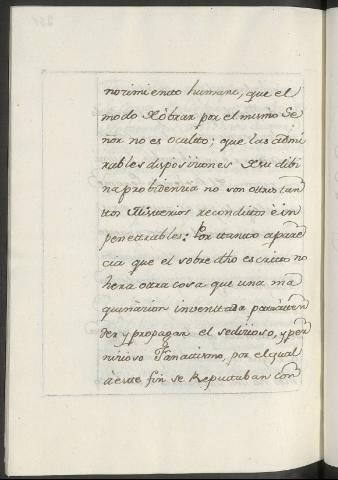 norimiento humano, que el
modo de òbrar por el mismo Se
ñor no es oculto; que las admi
rables disposiciones de su dibi
na probidencia no son otros tan
tos Misterios reconditos è in
penetrables: Por tanto apare
cia que el sobre dho escrito no
hera otra cosa que una ma
quinàcion inventada para àten
der y propagar el sedicioso, y per
nicioso Fanatismo, por el qual
à este fin se Reputaban con